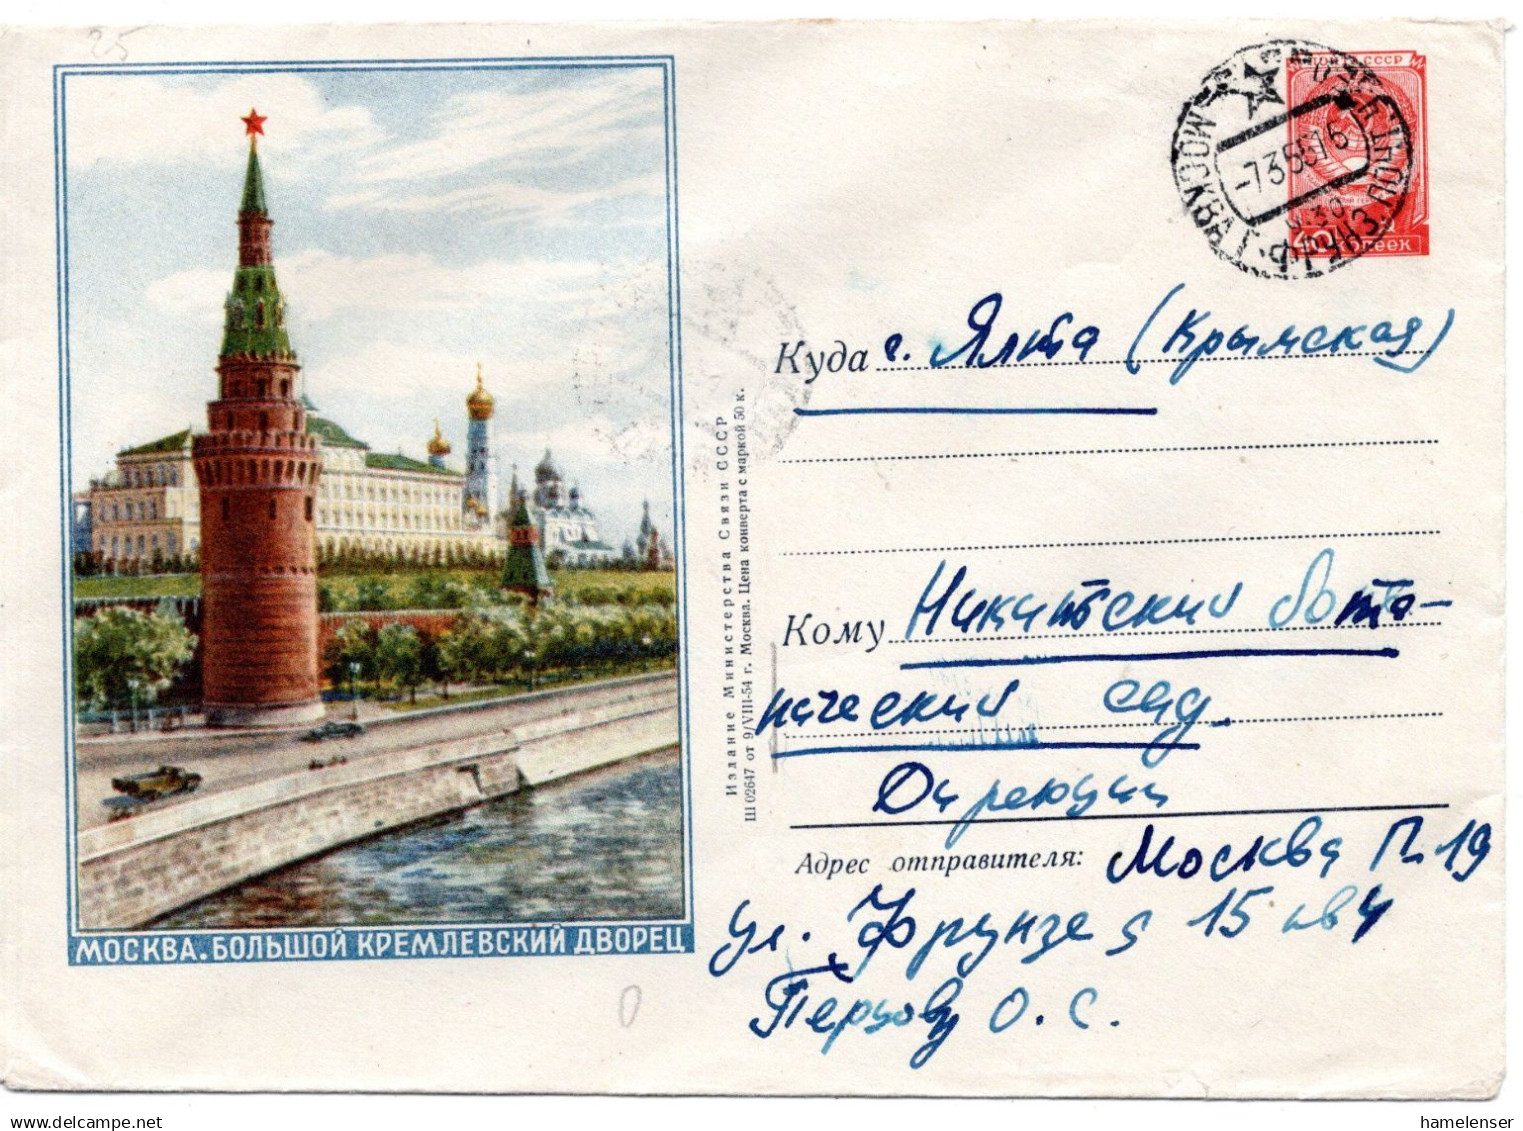 25
ПОЧТА СССР
МОСКВА Г. ФРУНЗ. ПОЧТ.
-7355 16
40
копеек
Куда г. Ялта (Крымская)
Кому Никитский бота-
нический сад.
Дирекции
Адрес отправителя: Москва Г. 19
ул. Фрунзе д 15 кв 4
Перцову О. С.
Издание Министерства Связи СССР
Ш 02647 от 9/VIII-54 г. Москва. Цена конверта с маркой 50 к.
МОСКВА. БОЛЬШОЙ КРЕМЛЕВСКИЙ ДВОРЕЦ
0
hamelenser